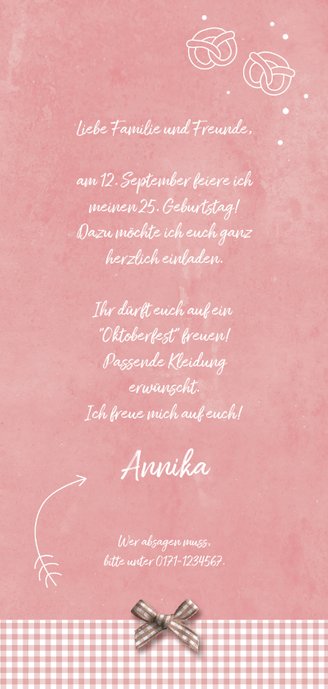 Liebe Familie und Freunde,
am 12. September feiere ich
meinen 25. Geburtstag!
Dazu möchte ich euch ganz
herzlich einladen.
Ihr dürft euch auf ein
"Oktoberfest" freuen!
Passende Kleidung
erwünscht.
Ich freue mich auf euch!
Annika
Wer absagen muss,
bitte unter 0171-1234567.